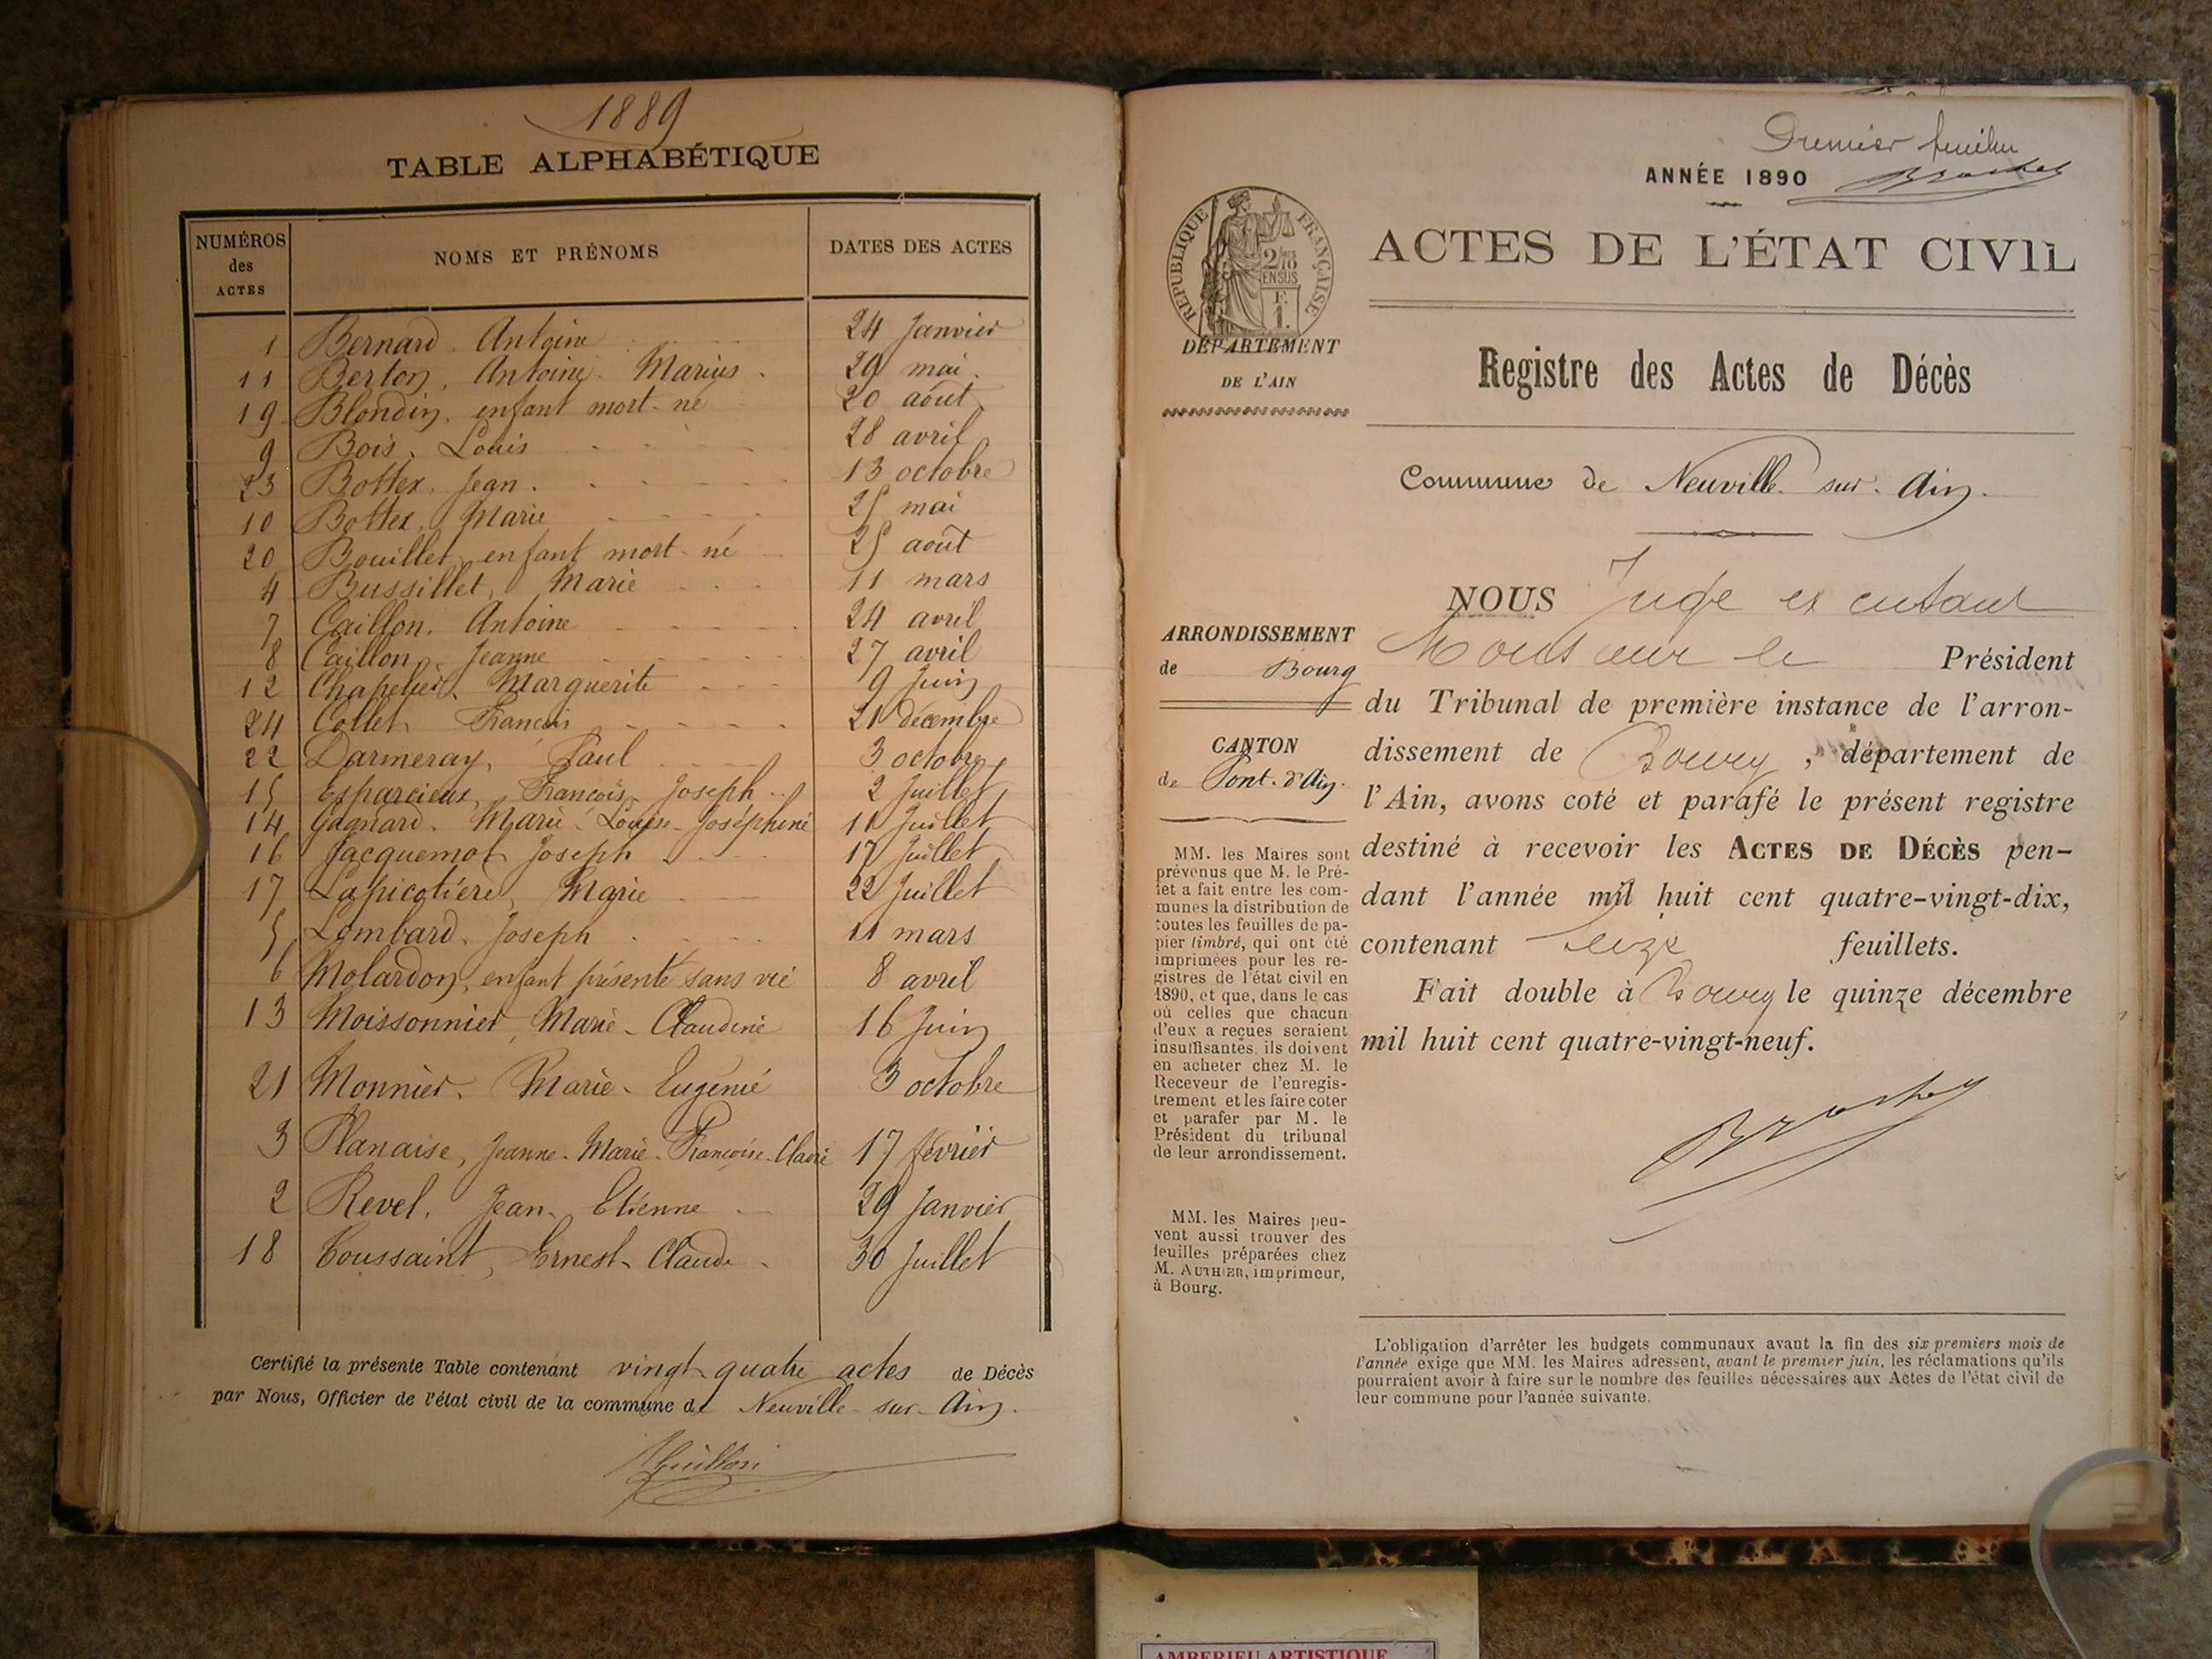 1889
TABLE ALPHABÉTIQUE
NUMÉROS des ACTES
NOMS ET PRÉNOMS
DATES DES ACTES
1 Bernard Antoine 24 Janvier
11 Berlon, Antoine Marius 29 mai
19 Blondin, enfant mort-né 20 août
9 Bois, Louis 28 avril
23 Bottex, Jean 13 octobre
10 Bottex, Marie 25 mai
20 Bouillet, enfant mort-né 25 août
4 Bussillet, Marie 11 mars
7 Caillon, Antoine 24 avril
8 Caillon, Jeanne 27 avril
12 Chapelier, Marguerite 9 Juin
24 Collet François 21 décembre
22 Darmeray, Paul 3 octobre
15 Esparcieux, François Joseph 2 Juillet
14 Gagnard, Marie-Louise-Joséphine 11 Juillet
16 Jacquemot Joseph 17 Juillet
17 Lapicotière, Marie 22 Juillet
5 Lombard, Joseph 11 mars
6 Molardon, enfant présenté sans vie 8 avril
13 Moissonnier, Marie-Claudine 16 Juin
21 Monnier, Marie-Eugénie 3 octobre
3 Planaise, Jeanne-Marie-Françoise-Claire 17 février
2 Revel, Jean-Etienne 29 Janvier
18 Toussaint, Ernest-Claude 30 Juillet
Certifié la présente Table contenant vingt quatre actes de Décès
par Nous, Officier de l'état civil de la commune de Neuville-sur-Ain.
Premier feuillet
ANNÉE 1890
RÉPUBLIQUE FRANÇAISE
2/10 EN SUS
F.
1.
ACTES DE L'ÉTAT CIVIL
DÉPARTEMENT
DE L'AIN
Registre des Actes de Décès
Commune de Neuville-sur-Ain.
ARRONDISSEMENT
de Bourg
CANTON
de Pont-d'Ain.
MM. les Maires sont
prévenus que M. le Pré-
fet a fait entre les com-
munes la distribution de
toutes les feuilles de pa-
pier timbré, qui ont été
imprimées pour les re-
gistres de l'état civil en
1890, et que, dans le cas
où celles que chacun
d'eux a reçues seraient
insuffisantes, ils doivent
en acheter chez M. le
Receveur de l'enregis-
trement et les faire coter
et parafer par M. le
Président du tribunal
de leur arrondissement.
MM. les Maires peu-
vent aussi trouver des
feuilles préparées chez
M. AUTHIER, imprimeur,
à Bourg.
NOUS Juge
Monsieur le Président
du Tribunal de première instance de l'arron-
dissement de Bourg, département de
l'Ain, avons coté et parafé le présent registre
destiné à recevoir les ACTES DE DÉCÈS pen-
dant l'année mil huit cent quatre-vingt-dix,
contenant seize feuillets.
Fait double à Bourg le quinze décembre
mil huit cent quatre-vingt-neuf.
L'obligation d'arrêter les budgets communaux avant la fin des six premiers mois de
l'année exige que MM. les Maires adressent, avant le premier juin, les réclamations qu'ils
pourraient avoir à faire sur le nombre des feuilles nécessaires aux Actes de l'état civil de
leur commune pour l'année suivante.
AMBERIEU ARTISTIQUE